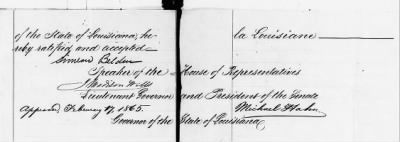 of the State of Louisiana, he-
reby ratified and accepted.
Simeon Belden
Speaker of the House of Representatives
J Madison Wells
Lieutenant Governor and President of the Senate
Approved, February 17, 1865.
Michael Hahn
Governor of the State of Louisiana
la Louisiane